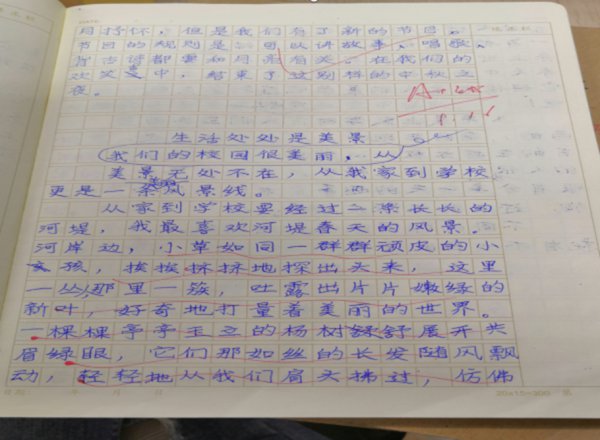 月抒怀，但是我们有了新的节目。
节目的规则是：团以讲故事、唱歌、
背古诗都要和月亮有关。在我们的
欢笑声中，结束了这别样的中秋之
夜。
A+
生活处处是美景
我们的校园很美丽，从
美景无处不在，从我家到学校
更是一条风景线。
从家到学校要经过一条长长的
河堤，我最喜欢河堤春天的风景。
河岸边，小草如同一群群顽皮的小
孩，挨挨挤挤地探出头来，这里
一丛，那里一簇，吐露出片片嫩绿的
新叶，好奇地打量着美丽的世界。
一棵棵亭亭玉立的杨树舒舒展开
眉绿眼，它们那如丝的长发随风飘
动，轻轻地从我们肩头拂过，仿佛
20×15=300